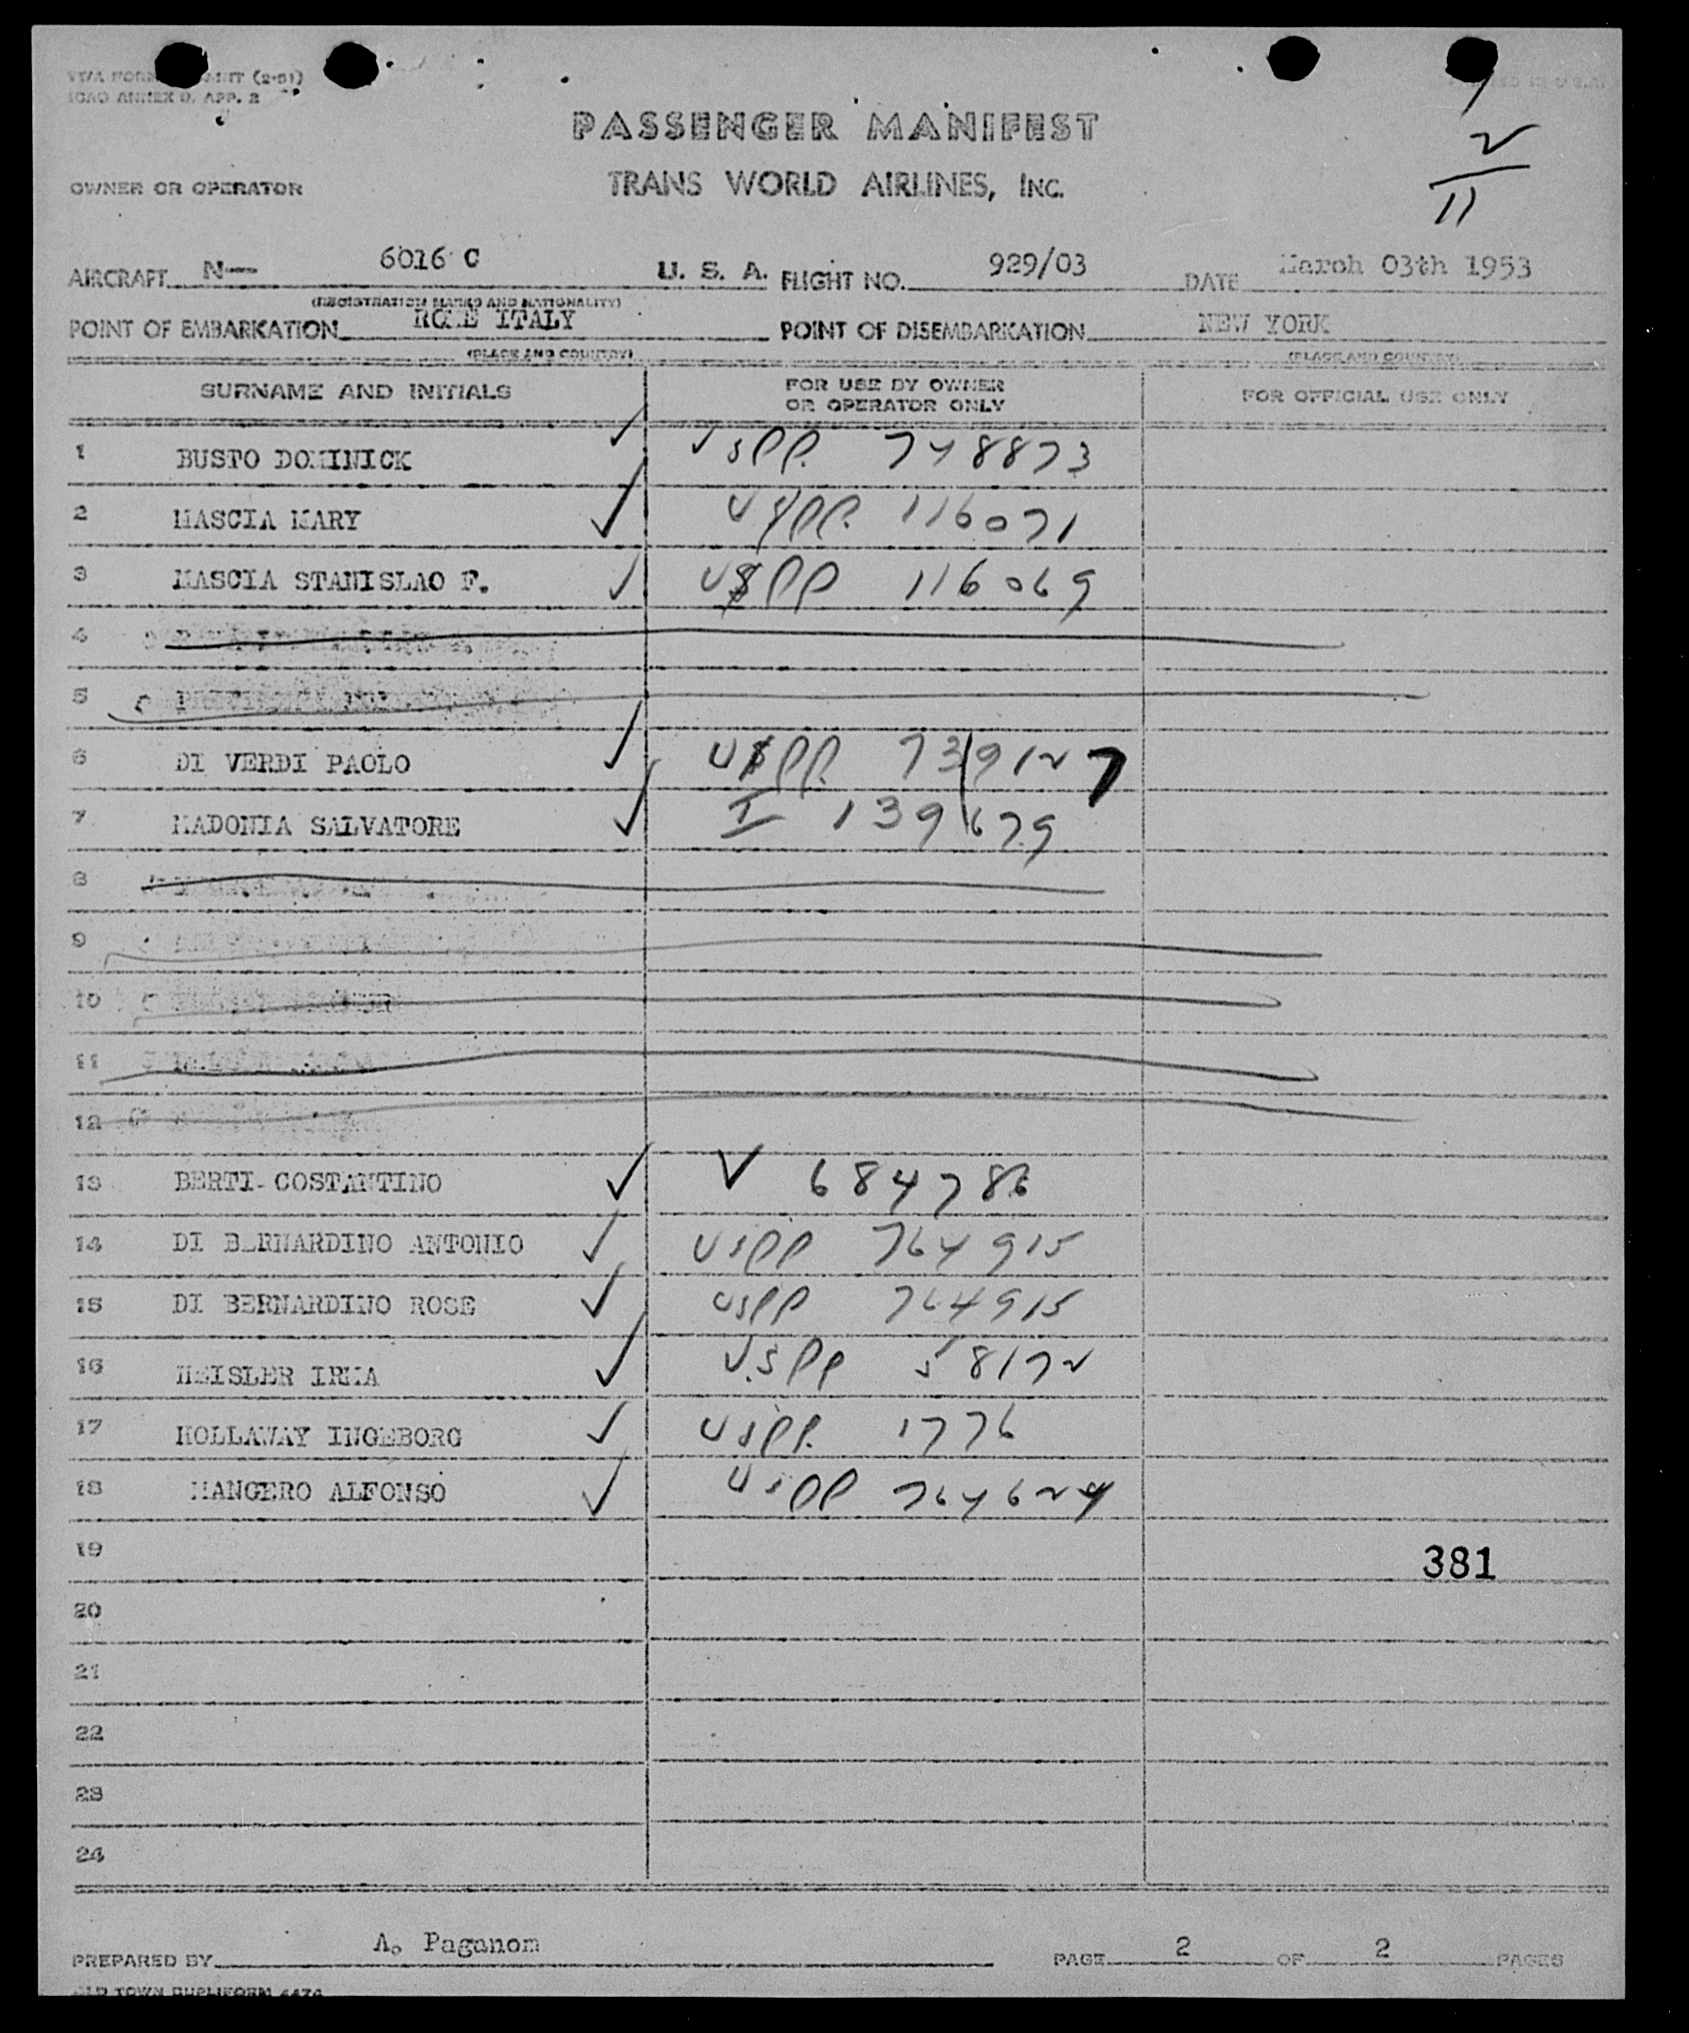 ICAO ANNEX 9, APP. 2
PASSENGER MANIFEST
OWNER OR OPERATOR TRANS WORLD AIRLINES, INC.
2
11
AIRCRAFT N— 6016 C U. S. A. FLIGHT NO. 929/03 DATE March 03th 1953
(REGISTRATION MARKS AND NATIONALITY)
POINT OF EMBARKATION ROME ITALY POINT OF DISEMBARKATION NEW YORK
(PLACE AND COUNTRY) (PLACE AND COUNTRY)
SURNAME AND INITIALS FOR USE BY OWNER OR OPERATOR ONLY FOR OFFICIAL USE ONLY
1 BUSTO DOMINICK ✓ USPP. 748873
2 MASCIA MARY ✓ USPP. 116071
3 MASCIA STANISLAO F. ✓ USPP 116069
4
5
6 DI VERDI PAOLO ✓ USPP. 739127
7 MADONIA SALVATORE ✓ I 139679
8
9
10
11
12
13 BERTI COSTANTINO ✓ V 684786
14 DI BERNARDINO ANTONIO ✓ USPP 764915
15 DI BERNARDINO ROSE ✓ USPP 764915
16 HEISLER IRMA ✓ U.SPP 58172
17 HOLLAWAY INGEBORG ✓ USPP. 1776
18 MANGERO ALFONSO ✓ USPP 764624
19 381
20
21
22
23
24
PREPARED BY A. Paganom PAGE 2 OF 2 PAGES
OLD TOWN DUPLIFORM 4474